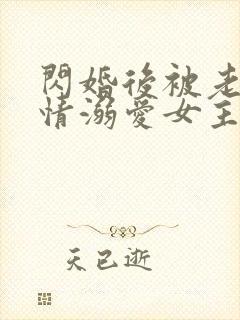 閃婚後被老
情溺愛女主
天已逝